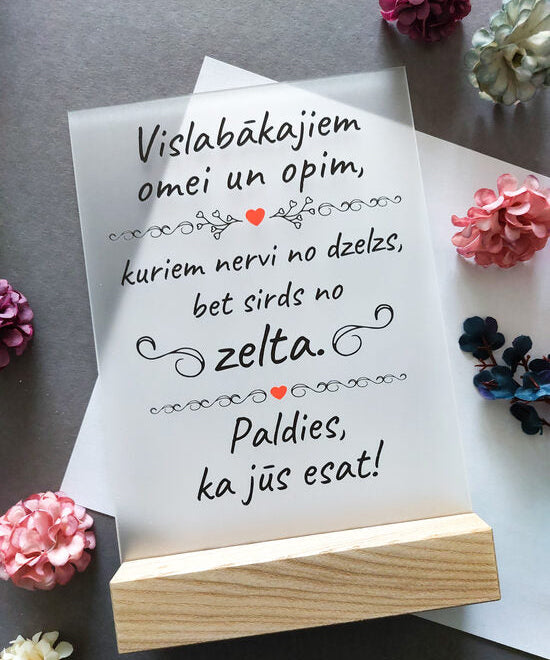 Vislabākajiem
omei un opim,
kuriem nervi no dzelzs,
bet sirds no
zelta.
Paldies,
ka jūs esat!